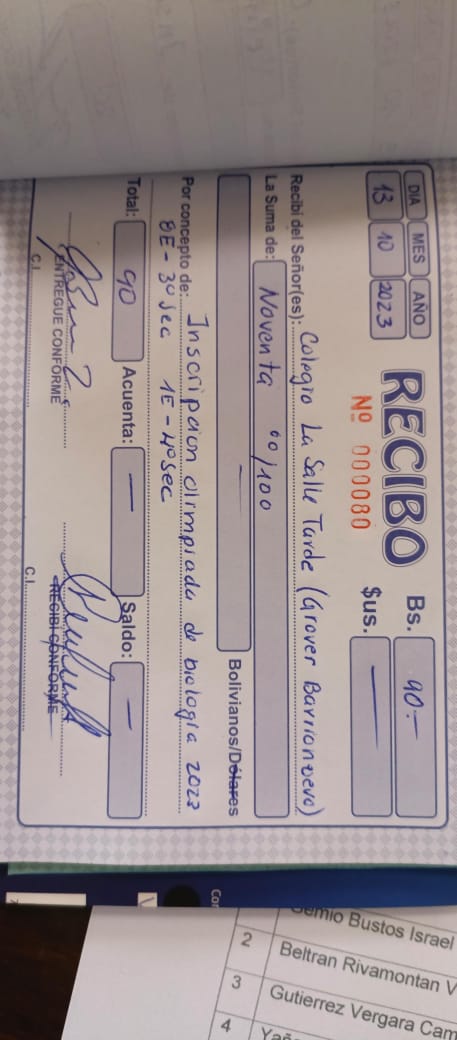 DIA MES AÑO
13 10 2023
RECIBO
Nº 000080
Bs. 90.-
$us. —
Recibí del Señor(es): Colegio La Salle Tarde (Grover Barrionuevo)
La Suma de: Noventa 00/100
— Bolivianos/Dólares
Por concepto de: Inscripcion olimpiada de biologia 2023
8E - 3º sec 1E - 4º sec
Total: 90 Acuenta: — Saldo: —
ENTREGUE CONFORME RECIBI CONFORME
C.I. C.I.
Bustos Israel
2 Beltran Rivamontan V
3 Gutierrez Vergara Cam
4